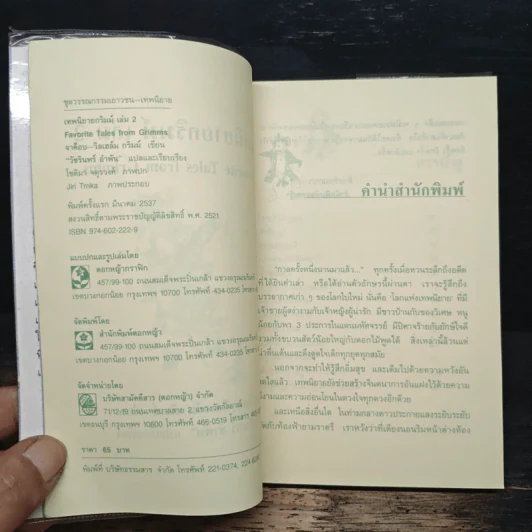 ชุดวรรณกรรมเยาวชน—เทพนิยาย
เทพนิยายกริมม์ เล่ม 2
Favorite Tales from Grimms
จาค็อบ—วิลเฮล์ม กริมม์ เขียน
"วัชรินทร์ อำพัน" แปลและเรียบเรียง
โชติมา จตุรวงค์ ภาพปก
Jiri Trnka ภาพประกอบ
พิมพ์ครั้งแรก มีนาคม 2537
สงวนสิทธิ์ตามพระราชบัญญัติลิขสิทธิ์ พ.ศ. 2521
ISBN 974-602-222-9
แบบปกและรูปเล่มโดย
ดอกหญ้ากราฟิค
457/99-100 ถนนสมเด็จพระปิ่นเกล้า แขวงอรุณอมรินทร์
เขตบางกอกน้อย กรุงเทพฯ 10700 โทรศัพท์ 434-0235
จัดพิมพ์โดย
สำนักพิมพ์ดอกหญ้า
457/99-100 ถนนสมเด็จพระปิ่นเกล้า แขวงอรุณ
เขตบางกอกน้อย กรุงเทพฯ 10700 โทรศัพท์ 434-
จัดจำหน่ายโดย
บริษัทสามัคคีสาร (ดอกหญ้า) จำกัด
71/12,19 ถนนเทศบาลสาย 2 แขวงวัดกัลยาณ์
เขตธนบุรี กรุงเทพฯ 10600 โทรศัพท์ 466-0519
ราคา 65 บาท
พิมพ์ที่ บริษัทธรรมสาร จำกัด โทรศัพท์ 221-0374,
คำนำสำนักพิมพ์
"กาลครั้งหนึ่งนานมาแล้ว..." ทุกครั้งเมื่อหวนระลึกถึงอดีต
ที่ได้ยินคำเล่า หรือได้อ่านตัวอักษรนี้ผ่านตา เราจะรู้สึกถึง
บรรยากาศเก่า ๆ ของโลกใบใหม่ นั่นคือ โลกแห่งเทพนิยาย ที่มี
เจ้าชายผู้สง่างามกับเจ้าหญิงผู้น่ารัก มีชาวบ้านกับของวิเศษ หนู
น้อยกับพร 3 ประการในแดนมหัศจรรย์ มีปีศาจร้ายกับยักษ์ใจดี
รวมทั้งขบวนสัตว์น้อยใหญ่กับดอกไม้พูดได้ สิ่งเหล่านี้ล้วนแต่
น่าตื่นเต้นและดึงดูดใจเด็กทุกยุคทุกสมัย
นอกจากจะทำให้รู้สึกอิ่มสุข และเต็มไปด้วยความหวังอัน
สดใสแล้ว เทพนิยายยังช่วยสร้างจินตนาการอันแฝงไว้ด้วยความ
ดีงามและความอ่อนโยนในดวงใจทุกดวงอีกด้วย
และเหนือสิ่งอื่นใด ในท่ามกลางดาวประกายแสงระยิบระยับ
กับท้องฟ้ายามราตรี เราหวังว่าที่เตียงนอนริมหน้าต่างห้อง